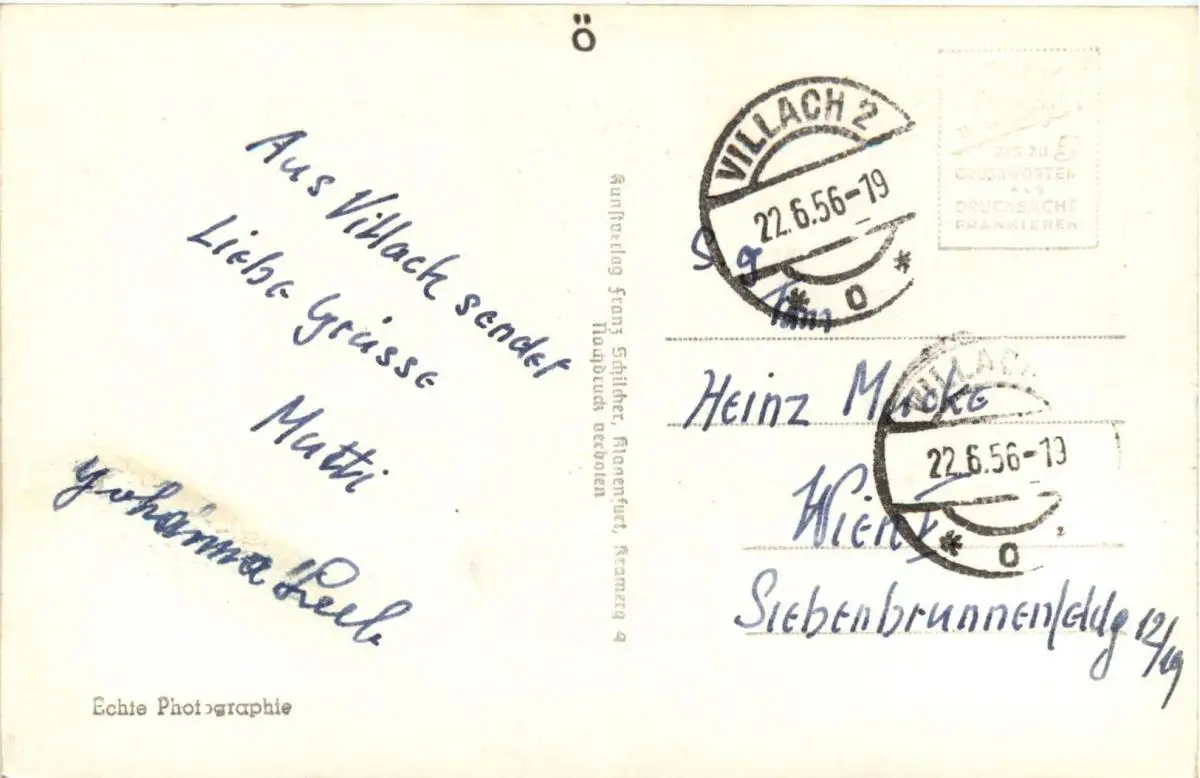 Ö
Aus Villach sendet
Liebe Grüsse
Mutti
Johanna Leeb
Echte Photographie
Kunstverlag Franz Schilcher, Klagenfurt, Kramerg 9
Nachdruck verboten
VILLACH 2
22.6.56-19
BIS ZU 5
GRUSSWORTEN
ALS
DRUCKSACHE
FRANKIEREN
S g
Fam
Heinz Mucke
Wien V
Siebenbrunnenfeldg 12/19
VILLACH
22.6.56-19